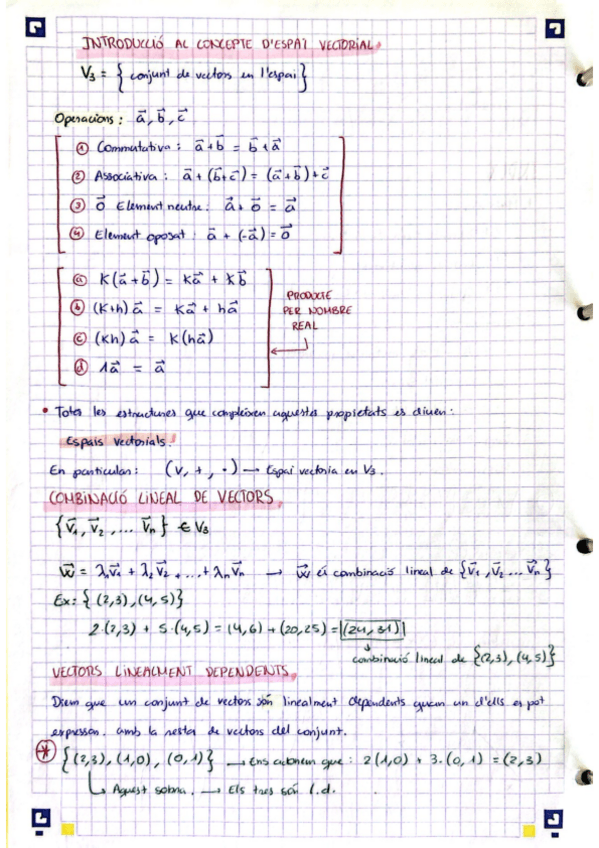 INTRODUCCIÓ AL CONCEPTE D'ESPAI VECTORIAL.
V₃ = { conjunt de vectors en l'espai }
Operacions: a⃗, b⃗, c⃗
① Commutativa: a⃗ + b⃗ = b⃗ + a⃗
② Associativa: a⃗ + (b⃗ + c⃗) = (a⃗ + b⃗) + c⃗
③ 0⃗ Element neutre: a⃗ + 0⃗ = a⃗
④ Element oposat: a⃗ + (-a⃗) = 0⃗
ⓐ K(a⃗ + b⃗) = Ka⃗ + Kb⃗
ⓑ (K+h) a⃗ = Ka⃗ + ha⃗
ⓒ (Kh) a⃗ = K(ha⃗)
ⓓ 1a⃗ = a⃗
PRODUCTE
PER NOMBRE
REAL
• Totes les estructures que compleixen aquestes propietats es diuen:
Espais vectorials.
En particular: (V, +, ·) → Espai vectoria en V₃.
COMBINACIÓ LINEAL DE VECTORS.
{ v⃗₁, v⃗₂, ... v⃗n } ∈ V₃
w⃗ = λ₁v⃗₁ + λ₂v⃗₂ + ... + λnv⃗n → w⃗ és combinació lineal de { v⃗₁, v⃗₂ ... v⃗n }
Ex: { (2,3), (4,5) }
2·(2,3) + 5·(4,5) = (4,6) + (20,25) = (24,31)
combinació lineal de {(2,3), (4,5)}
VECTORS LINEALMENT DEPENDENTS.
Diem que un conjunt de vectors són linealment dependents quan un d'ells es pot
expressar. amb la resta de vectors del conjunt.
* { (2,3), (1,0), (0,1) } → Ens adonem que: 2(1,0) + 3·(0,1) = (2,3)
Aquest sobra. → Els tres són l.d.